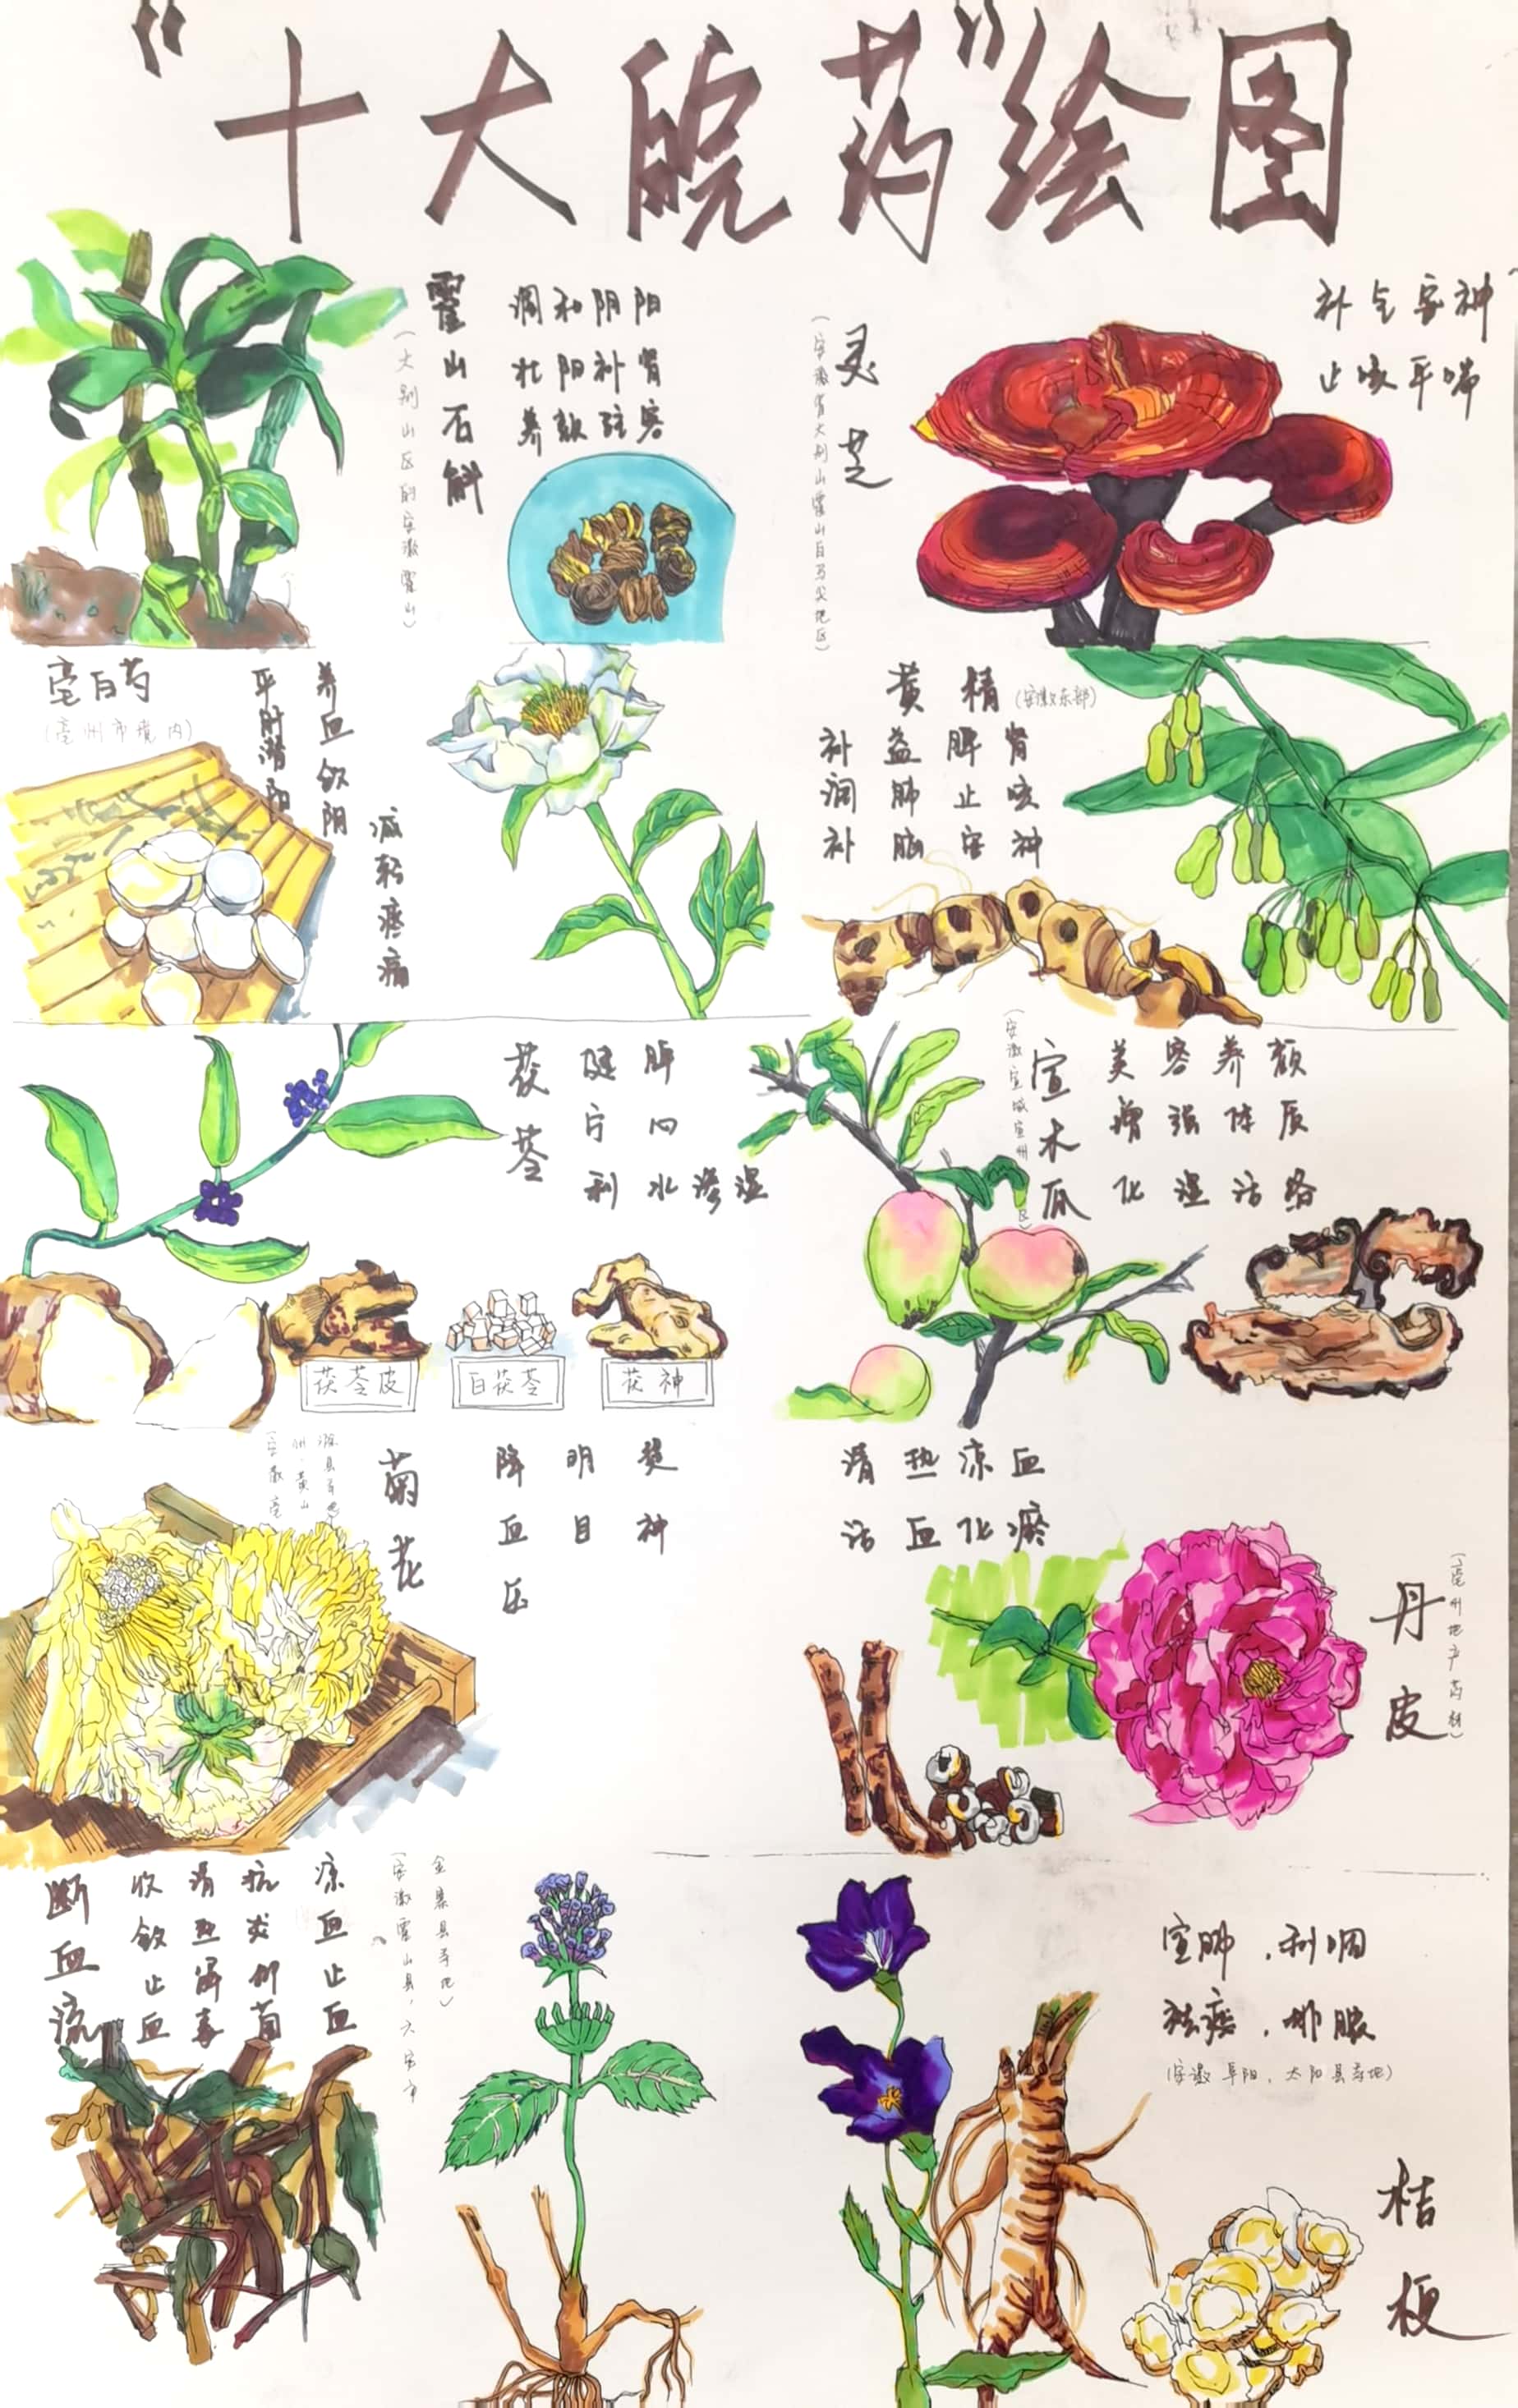 “十大皖药”绘图
霍山石斛
（大别山区的安徽霍山）
调和阴阳
壮阳补肾
养颜驻容
灵芝
（安徽省大别山霍山白马尖地区）
补气安神
止咳平喘
亳白芍
（亳州市境内）
养血敛阴
平肝潜阳
减轻疼痛
黄精
（安徽东部）
补益脾肾
润肺止咳
补脑安神
茯苓
健脾
宁心
利水渗湿
茯苓皮
白茯苓
茯神
宣木瓜
（安徽宣城宣州区）
美容养颜
增强体质
化湿活络
菊花
（安徽亳
州·黄山
降血压
明目
提神
清热凉血
活血化瘀
丹皮
（亳州地产药材）
断血流
凉血止血
抗炎抑菌
清热解毒
收敛止血
（安徽霍山县，六安市
金寨县等地）
宣肺，利咽
祛痰，排脓
（安徽阜阳，太阳县等地）
桔梗